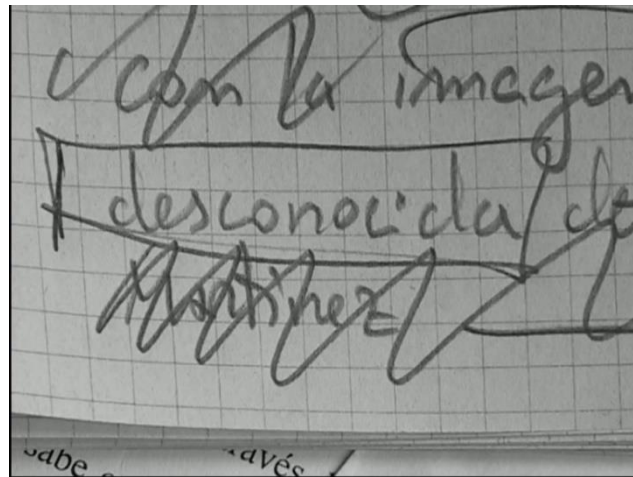 con la imagen
desconocida de
Martinez
sabe
ravés